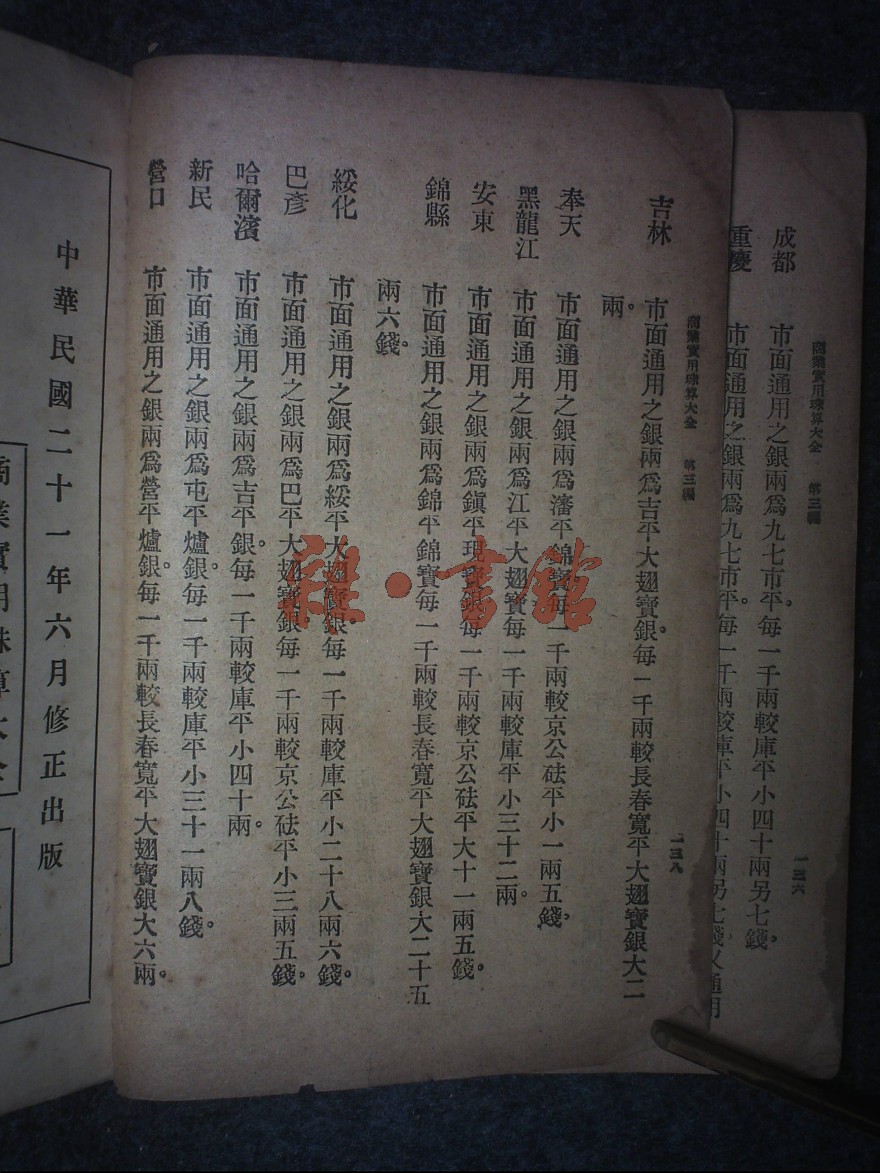 商業實用珠算大全　第三編
一三六
成都　市面通用之銀兩爲九七市平。每一千兩較庫平小四十兩另七錢。
重慶　市面通用之銀兩爲九七市平。每一千兩較庫平小四十兩另七錢又通用
商業實用珠算大全　第三編
一三八
吉林　市面通用之銀兩爲吉平大翅寶銀。每一千兩較長春寬平大翅寶銀大二
兩。
奉天　市面通用之銀兩爲瀋平錦寶每一千兩較京公砝平小一兩五錢。
黑龍江　市面通用之銀兩爲江平大翅寶每一千兩較庫平小三十二兩。
安東　市面通用之銀兩爲鎭平現寶銀每一千兩較京公砝平大十一兩五錢。
錦縣　市面通用之銀兩爲錦平錦寶每一千兩較長春寬平大翅寶銀大二十五
兩六錢。
綏化　市面通用之銀兩爲綏平大翅寶銀每一千兩較庫平小二十八兩六錢。
巴彥　市面通用之銀兩爲巴平大翅寶銀每一千兩較京公砝平小三兩五錢。
哈爾濱　市面通用之銀兩爲吉平銀。每一千兩較庫平小四十兩。
新民　市面通用之銀兩爲屯平爐銀。每一千兩較庫平小三十一兩八錢。
營口　市面通用之銀兩爲營平爐銀。每一千兩較長春寬平大翅寶銀大六兩。
中華民國二十一年六月修正出版
商業實用珠算大全
程·書館